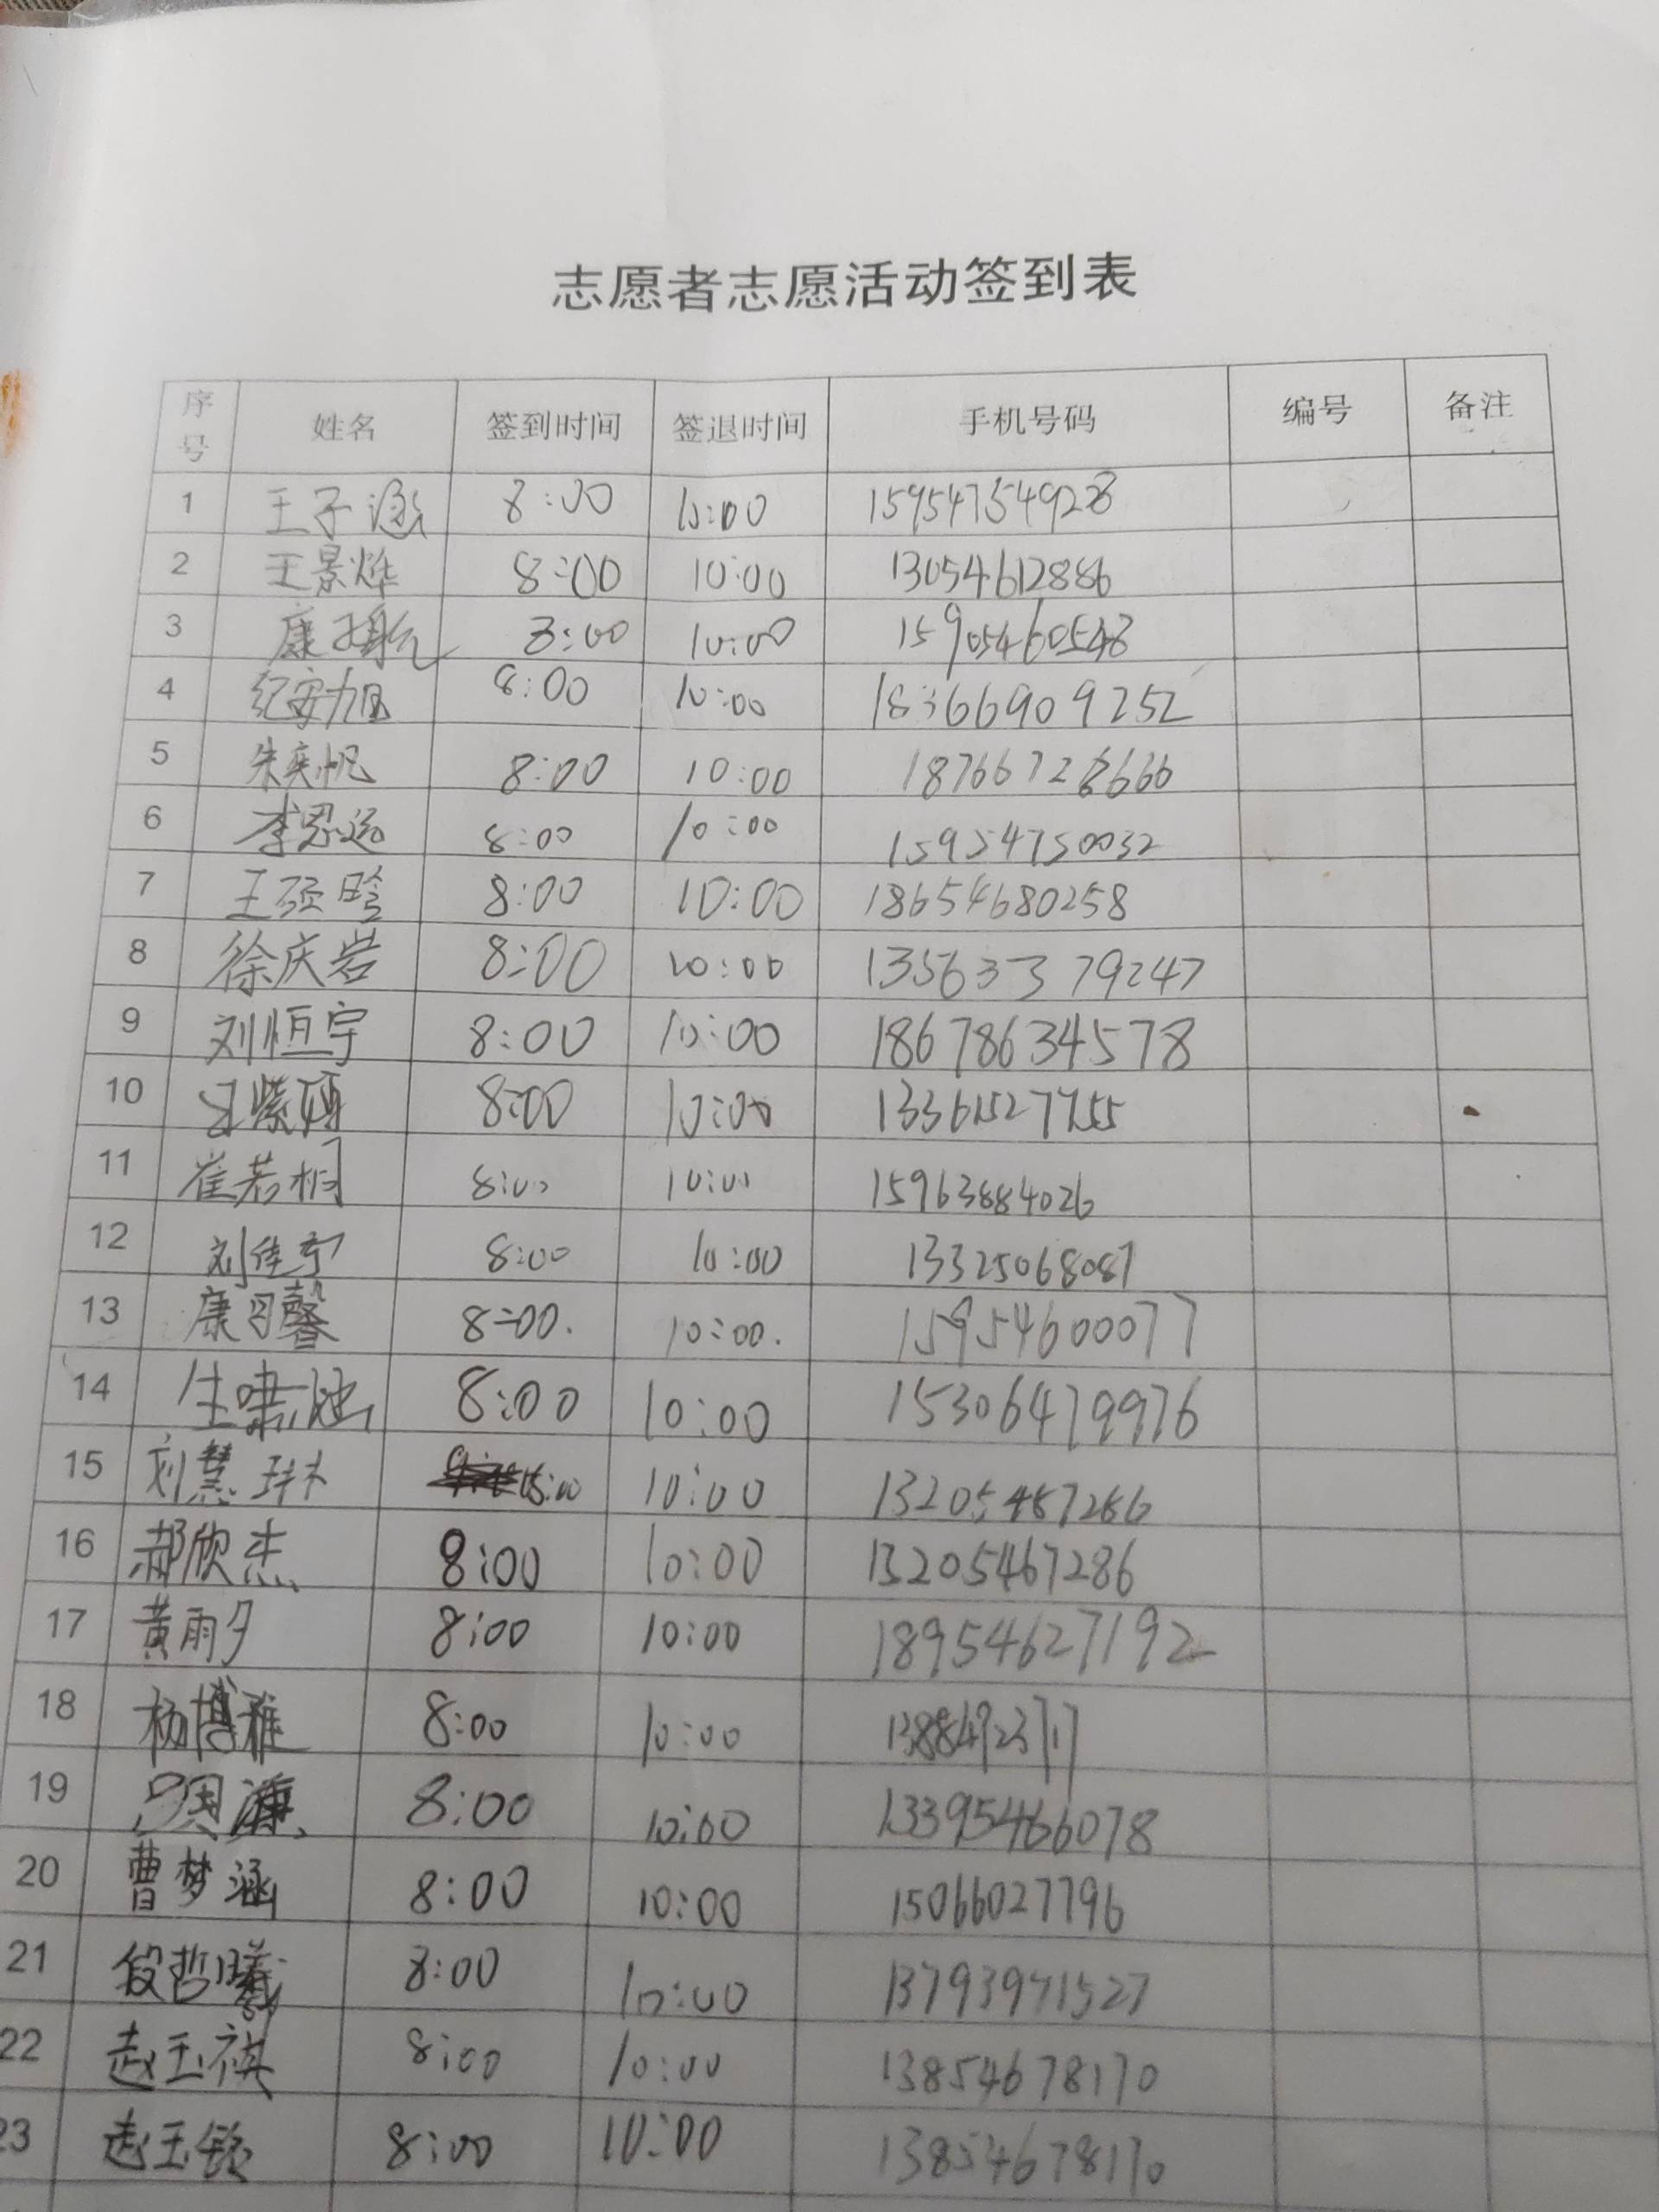 志愿者志愿活动签到表
序号 姓名 签到时间 签退时间 手机号码 编号 备注
1 王子涵 8:00 10:00
2 王景烨 8:00 10:00 13054612886
3 康 8:00 10:00 15905460548
4 纪安旭 8:00 10:00 18366909252
5 朱奕帆 8:00 10:00 18766728666
6 李思远 8:00 10:00 15954750032
7 王 晗 8:00 10:00 18654680258
8 徐庆岩 8:00 10:00 13563379247
9 刘恒宇 8:00 10:00 18678634578
10 8:00 10:00 13361527755
11 崔若桐 8:00 10:00 15963884026
12 刘佳宁 8:00 10:00 13325068087
13 康 馨 8:00. 10:00. 15954600077
14 生啸 8:00 10:00 15306479976
15 刘慧琳 10:00
16 郝欣杰 8:00 10:00 13205467286
17 黄雨夕 8:00 10:00 18954627192
18 杨博雅 8:00 10:00
19 8:00 10:00 13395466078
20 曹梦涵 8:00 10:00 15066027796
21 段哲曦 8:00 10:00 13793971527
22 赵玉祺 8:00 10:00 13854678170
23 赵玉 8:00 10:00 13854678170